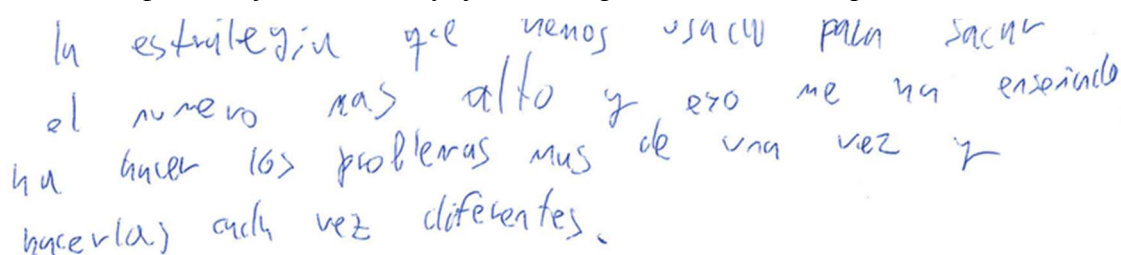 la estrategia que hemos usado para sacar
el numero mas alto y eso me ha enseñado
ha hacer los problemas mas de una vez y
hacerlas cada vez diferentes.